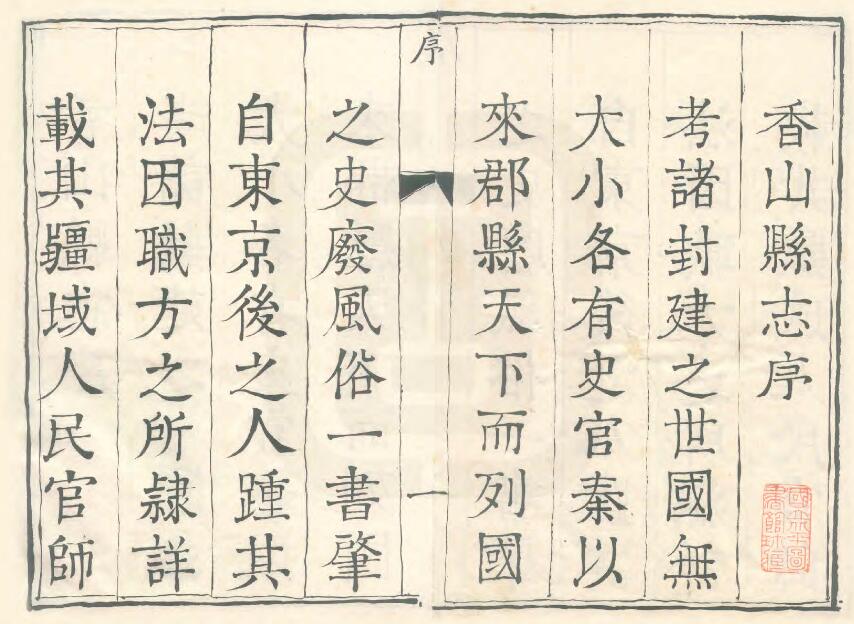 香山縣志序
考諸封建之世國無
大小各有史官秦以
來郡縣天下而列國
序
一
之史廢風俗一書肇
自東京後之人踵其
法因職方之所隷詳
載其疆域人民官師